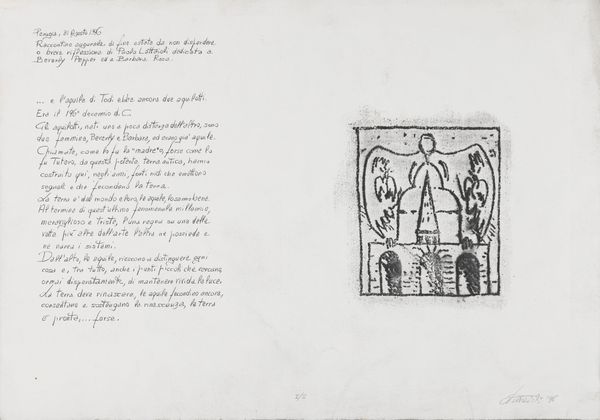 Perugia, 31 Agosto 1996
Raccontino augurale di fine estate da non disperdere
o breve riflessione di Paolo Lattaioli dedicata a
Beverly Pepper ed a Barbara Rose.
... e l'aquila di Todi ebbe ancora due aquilotti.
Era il 196° decennio d.C.
Gli aquilotti, nati uno a poca distanza dell'altro, sono
due femmine, Beverly e Barbara, ed erano già aquile.
Chiamate, come lo fu la "madre", forse come lo
fu Tutero, da questa potente, terra antica, hanno
costruito qui, negli anni, forti nidi che emettono
segnali e che fecondano la terra.
La terra e' del mondo e loro, le aquile, lo sanno bene.
Al termine di quest'ultimo fenomenale millennio,
meraviglioso e triste, l'una regna su una delle
vette piu' alte dell'arte l'altra ne possiede e
ne narra i sistemi.
Dall'alto, le aquile, riescono a distinguere ogni
cosa e, tra tutto, anche i punti piccoli che cercano,
ormai disperatamente, di mantenere viva la luce.
La terra deve rinascere, le aquile fecondino ancora,
consentano e sostengano la rinascenza, la terra
e' pronta,... forse.
2/5
'96